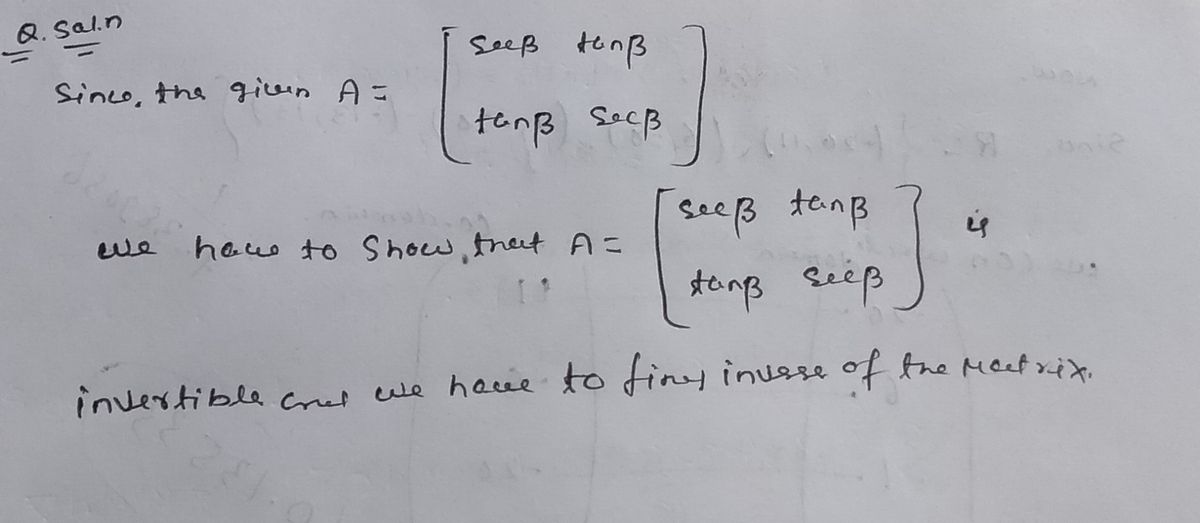 Q. Sol.n
Since, the given A = [ secβ tanβ
tanβ secβ ]
we have to show, that A = [ secβ tanβ
tanβ secβ ] is
invertible and we have to find inverse of the Matrix.